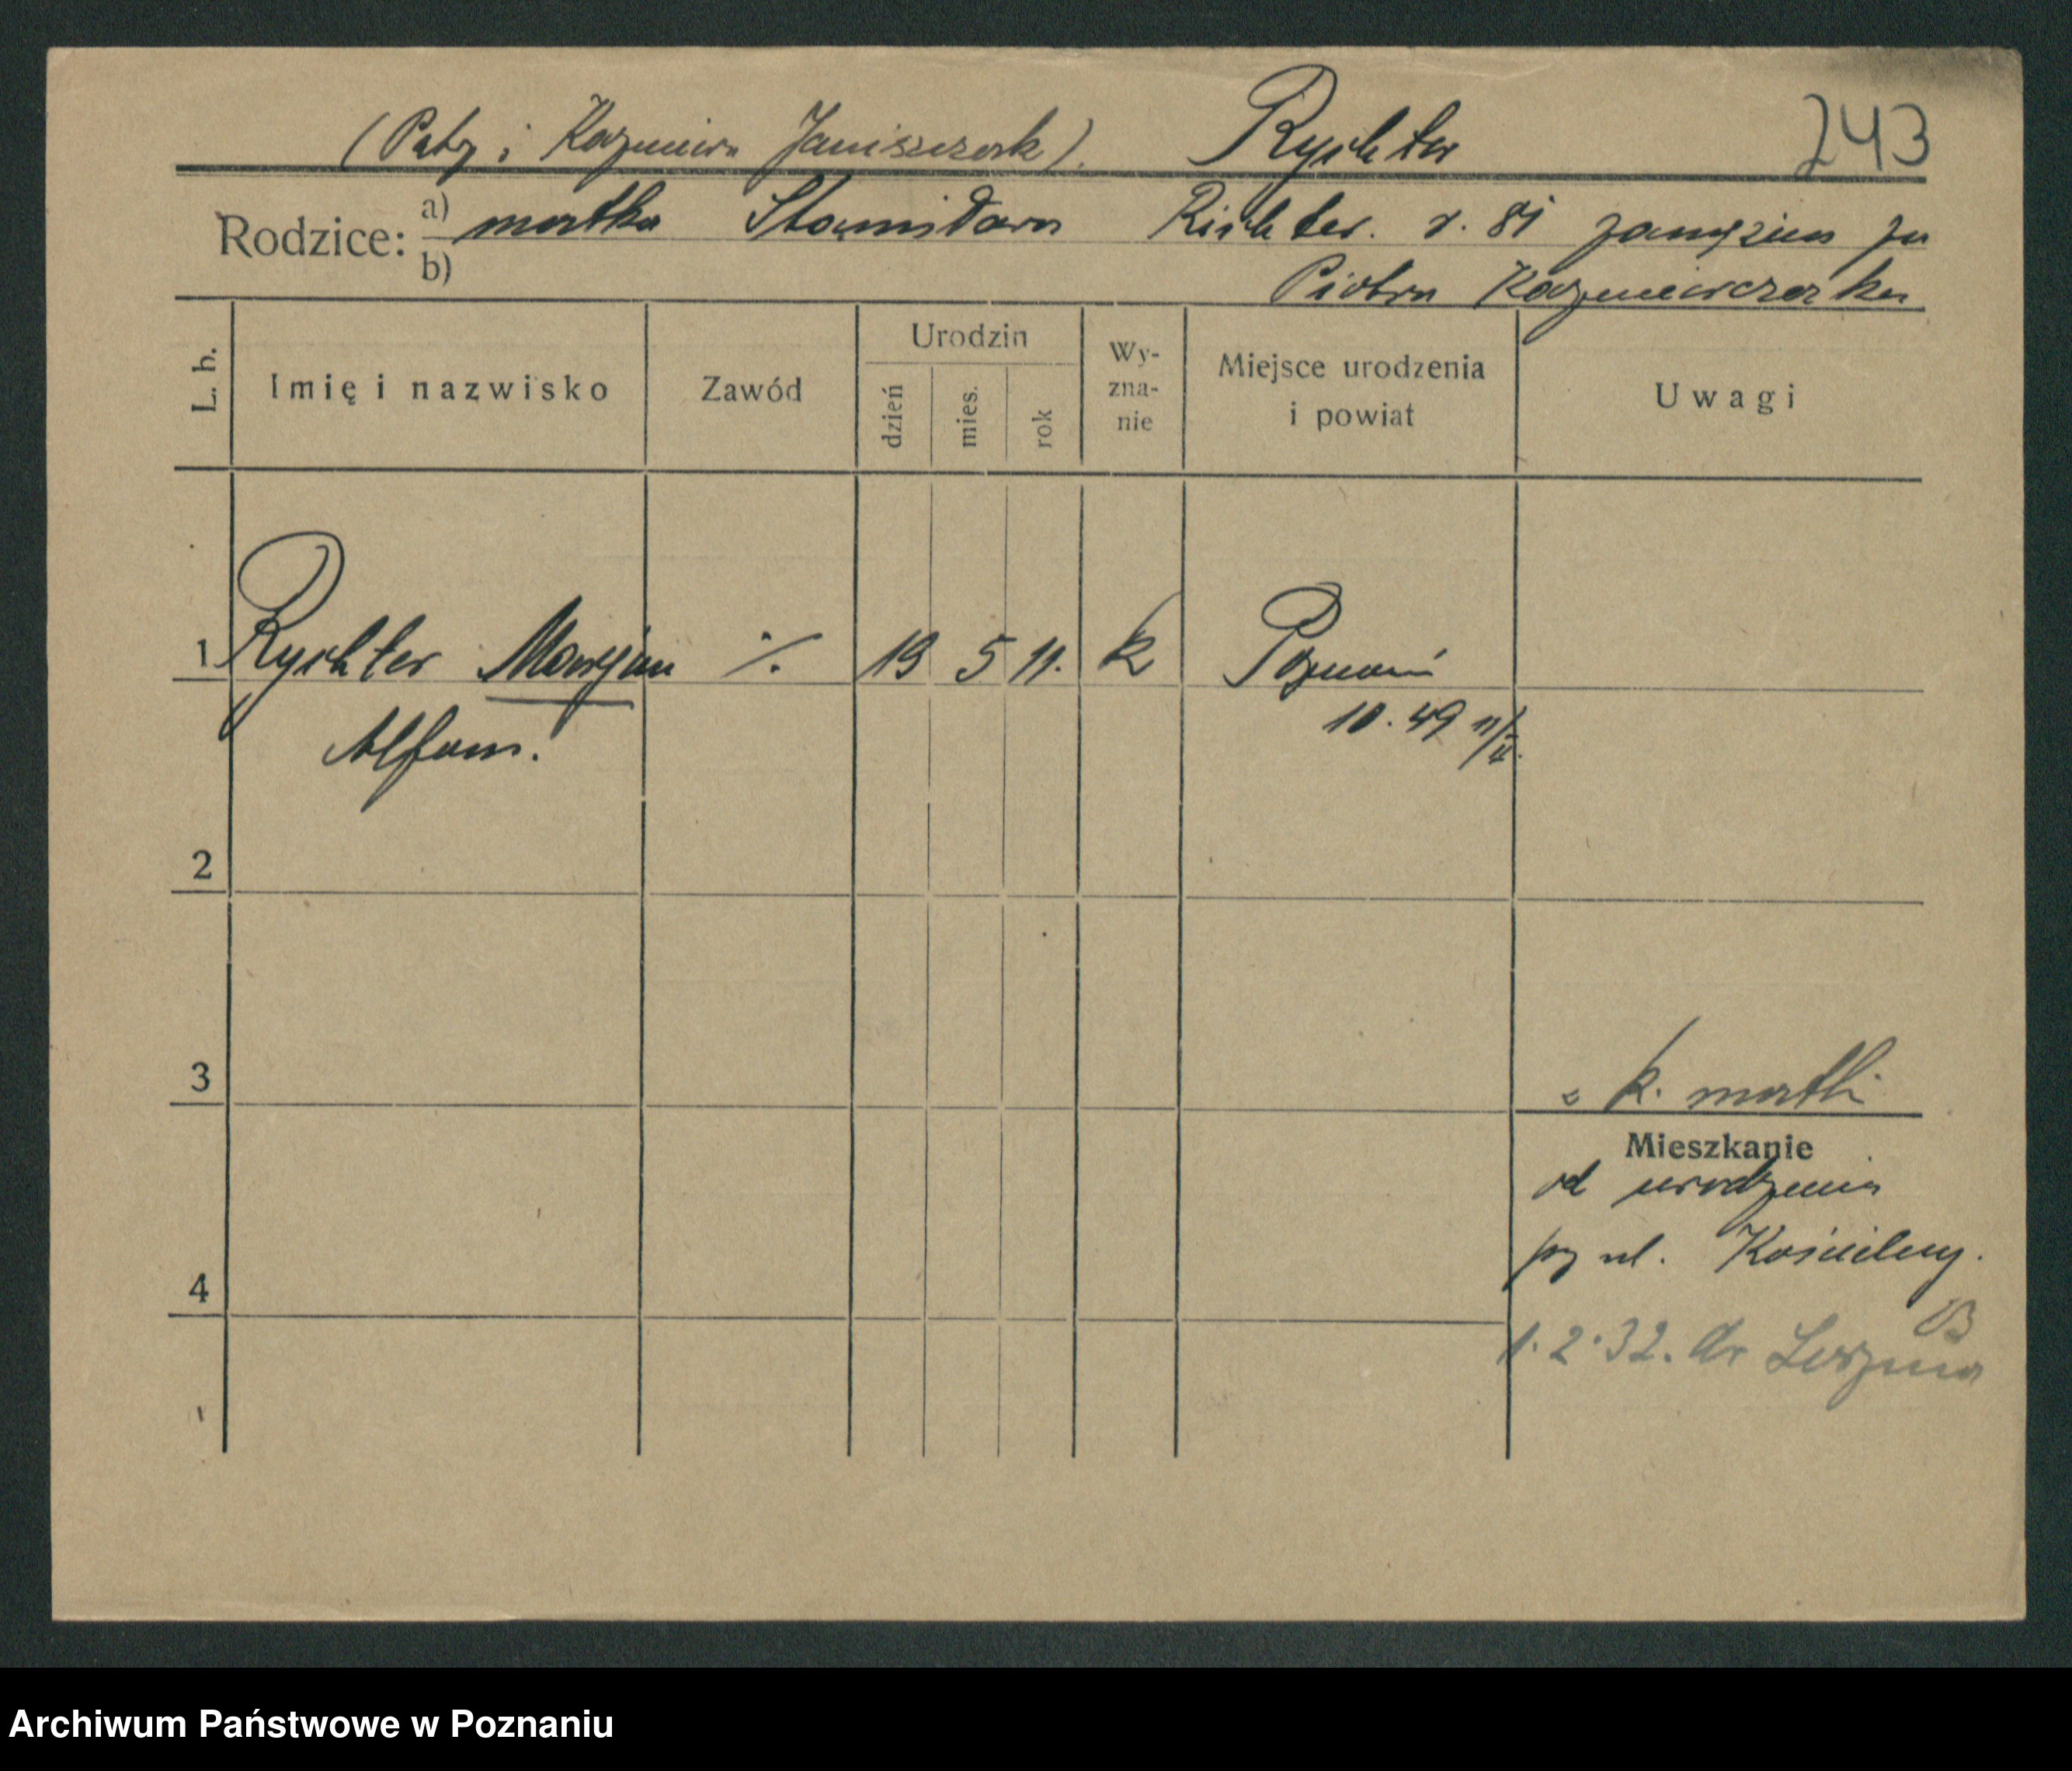 (Patrz i Kazmierz Janiszczak). Rychter 243
Rodzice: a) matka Stanisława Richter. r. 81 zamężna za
b) Piotra Kazmierczaka
L. b. Imię i nazwisko Zawód Urodzin dzień mies. rok Wy-zna-nie Miejsce urodzenia i powiat Uwagi
1 Rychter Maryan ./. 19 5 11. k Poznań
Alfons. 10.49 11/II.
2
3 k. matki
Mieszkanie
od urodzenia
przy ul. Kościelny.
4
1.2.32. do Leszna
Archiwum Państwowe w Poznaniu